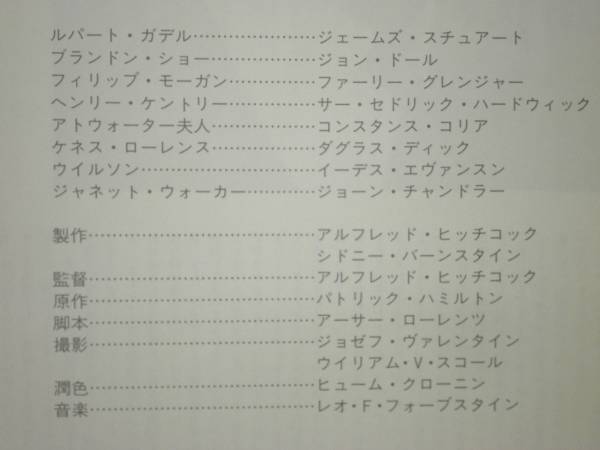 ルパート・ガデル…………………ジェームズ・スチュアート
ブランドン・ショー…………………ジョン・ドール
フィリップ・モーガン……………ファーリー・グレンジャー
ヘンリー・ケントリー……………サー・セドリック・ハードウィック
アトウォーター夫人………………コンスタンス・コリア
ケネス・ローレンス………………ダグラス・ディック
ウイルソン…………………………イーデス・エヴァンスン
ジャネット・ウォーカー…………ジョーン・チャンドラー
製作…………………………………アルフレッド・ヒッチコック
シドニー・バーンスタイン
監督…………………………………アルフレッド・ヒッチコック
原作…………………………………パトリック・ハミルトン
脚本…………………………………アーサー・ローレンツ
撮影…………………………………ジョゼフ・ヴァレンタイン
ウイリアム・V・スコール
潤色…………………………………ヒューム・クローニン
音楽…………………………………レオ・F・フォーブスタイン